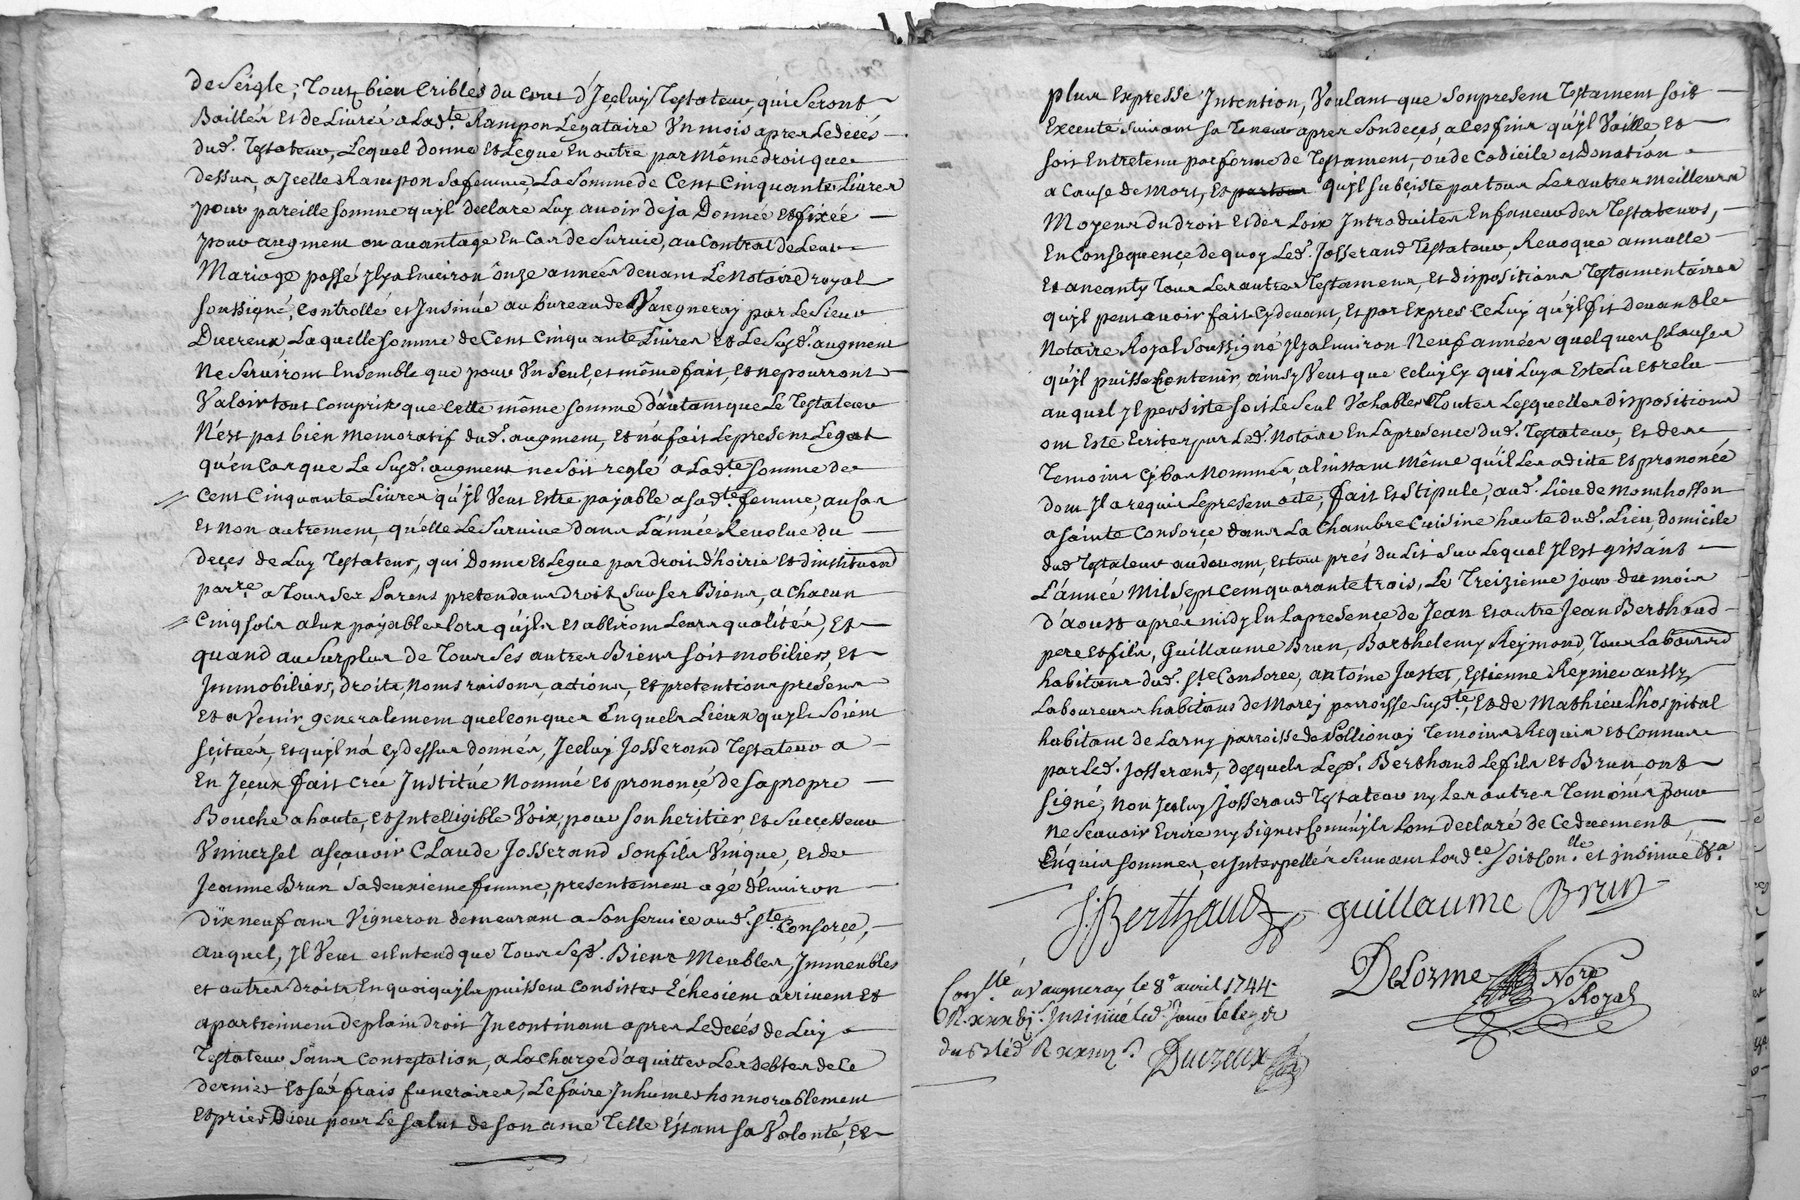 de Seigle; Tout bien Criblés du crus d'Jceluy Testateur, qui Seront
Bailler Et de Livrer a Lad.te Rampon Legataire Un mois apres Le deces
dud. Testateur, Lequel donne Et Legue En outre par Même droit que
dessus, a Jcelle Rampon Sa femme, La Somme de Cent Cinquante Livres
pour pareille somme qu'jl declare Luy avoir deja Donnée Et fixée
pour augment ou avantage En Cas de Survie, au Contrat de Leur
Mariage passé jl ya Environ ônze années devant Le Notaire royal
soussigné, Controllé et Jnsinué au bureau de Vaugneray par Le Sieur
Ducreux, Laquelle somme de Cent Cinquante Livres et Le Susd. augment
Ne Serviront Ensemble que pour Un Seul, et même fait, Et ne pourront
Valoir tout Compris que Cette même somme d'autant que Le Testateur
N'est pas bien memoratif dud. augment, Et n'a fait Le present Legat
qu'en Cas que Le Susd. augment ne Soit reglé a Lad.te somme de
Cent Cinquante Livres qu'jl Veut Estre payable a sad.te femme, au Cas
Et non autrement, qu'elle Le Survive dans L'année Revolue du
deces de Luy Testateur, qui Donne Et Legue par droit d'hoirie Et d'institution
par.re a Tous Ses Parens pretendans droit Sur Ses Biens, a Chacun
Cinq sols a Eux payables lors qu'jls Etabliront Leurs qualités, Et
quand au Surplus de Tous Ses autres Biens soit mobiliers, Et
Jmmobiliers, droits, Noms raisons, actions, Et pretentions presens
Et a Venir generalement quelconques En quels Lieux qu'jls Soient
scitués, Et qu'jl n'a cy dessus donnés, Jceluy Josserand Testateur a
En Jceux fait Créé Jnstitué Nommé Et prononcé de sa propre
Bouche a haute, Et Jntelligible Voix, pour son heritier, Et Successeur
Universel a sçavoir Claude Josserand Son fils Unique, Et de
Jeanne Brun Sa deuxieme femme, presentement agé d'Environ
Dix neuf ans Vigneron demeurant a Son Service aud. S.te Consorce,
auquel, Jl Veut Et Entend que Tous Sesd. Biens Meubles, Jmmeubles
et autres droits En quoi qu'jls puissent Consister Echeoient arrivent Et
apartiennent de plain droit Jncontinant apres Le deces de Luy
Testateur Sans Contestation, a La Charge d'aquitter Les debtes de Ce
dernier Et ses frais funeraires, Le faire Jnhumer honnorablement
Et prier Dieu pour Le salut de Son ame Telle Estant sa Volonté, Et
plus Expresse Jntention, Voulant que Son present Testament soit
Executé Suivant sa Teneur apres Son deces, a Les fins qu'jl Vaille, Et
soit Entretenu par forme de Testament, ou de Codicile et Donation
a Cause de Mort, Et qu'jl subsiste par tous Les autres meilleurs
Moyens du droit Et des Loix Jntroduites En faveur des Testateurs,
En Consequence de quoy Led. Josserand Testateur, Revoque annulle
Et aneanty Tous Les autres Testamens, Et dispositions Testamentaires
qu'jl peut avoir fait Cy devant, Et par Expres Celuy qu'jl fit devant Le
Notaire Royal Soussigné Jl ya Environ Neuf années quelques Clauses
qu'jl puisse Contenir, ainsy Veut que Celuy Cy qui Luy a Esté Lu Et relu
auquel jl persiste soit Le Seul Valable Toutes Lesquelles dispositions
ont Esté Ecrites par Led. Notaire En La presence dud. Testateur, Et des
Temoins Cy bas Nommés, a l'instant Même qu'il Les a ditté Et prononcé
dont Jl a requis Le present acte, fait Et Stipulé, aud. Lieu de Monthollon
a sainte Consorce dans La Chambre Cuisine haute dud. Lieu, domicile
dud. Testateur au devant, Et tout prés du Lit Sur Lequel Jl Est gissant
L'année Mil Sept Cent quarante trois, Le Treizieme jour du mois
d'aoust aprés midy En La presence de Jean Et autre Jean Berthaud
pere Et fils, Guillaume Brun, Barthelemy Reymond, Tous Laboureurs
habitans dud. S.te Consorce, antoine Justet, Estienne Regnier aussy
Laboureurs habitans de Marcy parroisse susd.te, Et de Mathieu Lhospital
habitant de Larny parroisse de Pollionay Temoins Requis Et Connus
par Led. Josserand, desquels Lesd. Berthaud Le fils Et Brun ont
signé, non Jceluy Josserand Testateur ny Les autres Temoins pour
ne Scavoir Ecrire ny Signer Comm'jls L'ont declaré de Ce duement
Enquis sommes, et Jnterpellés Suivant Lord.ce Soit Con.llé et jnsinué
J. Berthaud guillaume Brun
DeLorme No.re
Royal
Con.llé a Vaugneray le 8.e avril 1744
Jnsinué led. Jour
Ducreux